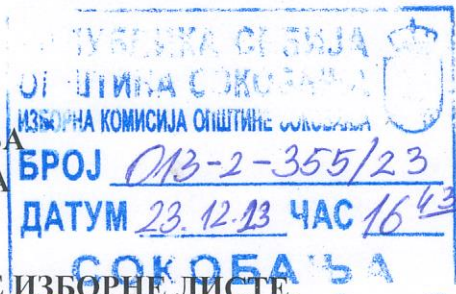 РЕПУБЛИКА СРБИЈА
ОПШТИНА СОКОБАЊА
ИЗБОРНА КОМИСИЈА ОПШТИНЕ СОКОБАЊА
БРОЈ 013-2-355/23
ДАТУМ 23.12.23 ЧАС 16 43
СОКОБАЊА
ИЗБОРНЕ ЛИСТЕ